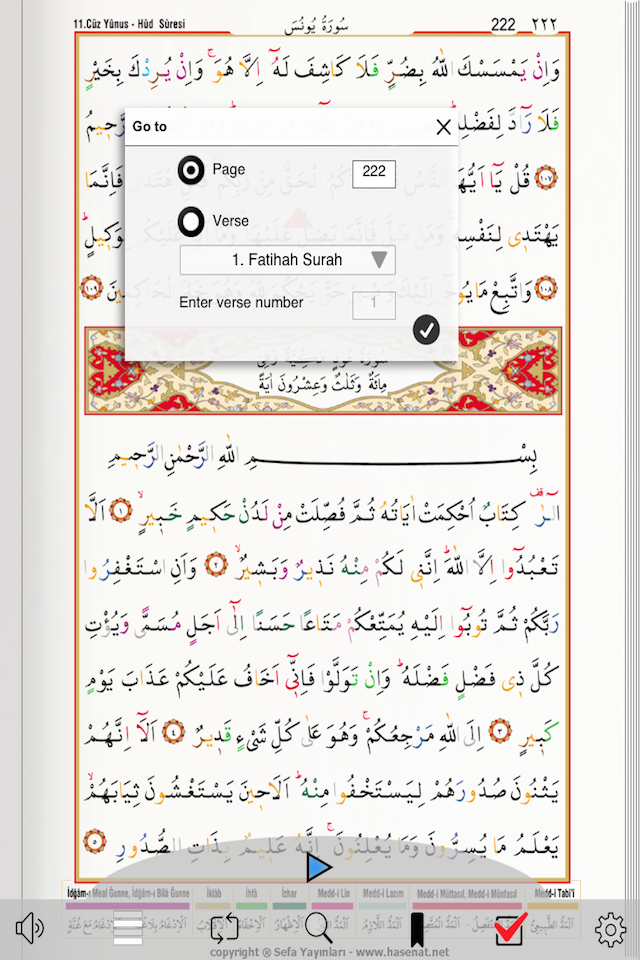 11.Cüz Yûnus - Hûd Sûresi
سُورَةُ يُونُسَ
222 ٢٢٢
وَاِنْ يَمْسَسْكَ اللّٰهُ بِضُرٍّ فَلَا كَاشِفَ لَهُٓ اِلَّا هُوَۚ وَاِنْ يُرِدْكَ بِخَيْرٍ
فَلَا رَٓادَّ لِفَضْلِه۪
Go to
Page 222
Verse
1. Fatihah Surah
Enter verse number 1
﴿١٠٧﴾ قُلْ يَٓا اَيُّهَا
فَاِنَّمَا
يَهْتَد۪ي لِنَفْسِه۪
بِوَك۪يلٍۜ
﴿١٠٨﴾ وَاتَّبِعْ مَا يُوحٰٓى
﴿١٠٩﴾
مِائَةٌ وَثَلٰثٌ وَعِشْرُونَ اٰيَةً
بِسْمِ اللّٰهِ الرَّحْمٰنِ الرَّح۪يمِ
الٓرٰ۠ كِتَابٌ اُحْكِمَتْ اٰيَاتُهُ ثُمَّ فُصِّلَتْ مِنْ لَدُنْ حَك۪يمٍ خَب۪يرٍۙ ﴿١﴾ اَلَّا
تَعْبُدُٓوا اِلَّا اللّٰهَۜ اِنَّن۪ي لَكُمْ مِنْهُ نَذ۪يرٌ وَبَش۪يرٌۙ ﴿٢﴾ وَاَنِ اسْتَغْفِرُوا
رَبَّكُمْ ثُمَّ تُوبُٓوا اِلَيْهِ يُمَتِّعْكُمْ مَتَاعًا حَسَنًا اِلٰٓى اَجَلٍ مُسَمًّى وَيُؤْتِ
كُلَّ ذ۪ي فَضْلٍ فَضْلَهُۜ وَاِنْ تَوَلَّوْا فَاِنّ۪ٓي اَخَافُ عَلَيْكُمْ عَذَابَ يَوْمٍ
كَب۪يرٍ ﴿٣﴾ اِلَى اللّٰهِ مَرْجِعُكُمْۚ وَهُوَ عَلٰى كُلِّ شَيْءٍ قَد۪يرٌ ﴿٤﴾ اَلَٓا اِنَّهُمْ
يَثْنُونَ صُدُورَهُمْ لِيَسْتَخْفُوا مِنْهُۜ اَلَا ح۪ينَ يَسْتَغْشُونَ ثِيَابَهُمْۙ
يَعْلَمُ مَا يُسِرُّونَ وَمَا يُعْلِنُونَۚ اِنَّهُ عَل۪يمٌ بِذَاتِ الصُّدُورِ ﴿٥﴾
İdğâm-ı Meal Ğunne, İdğâm-ı Bilâ Ğunne İklâb İhfâ İzhar Medd-i Lin Medd-i Lazım Medd-i Müttasıl, Medd-i Münfasıl Medd-i Tabi'i
copyright ® Sefa Yayınları - www.hasenat.net